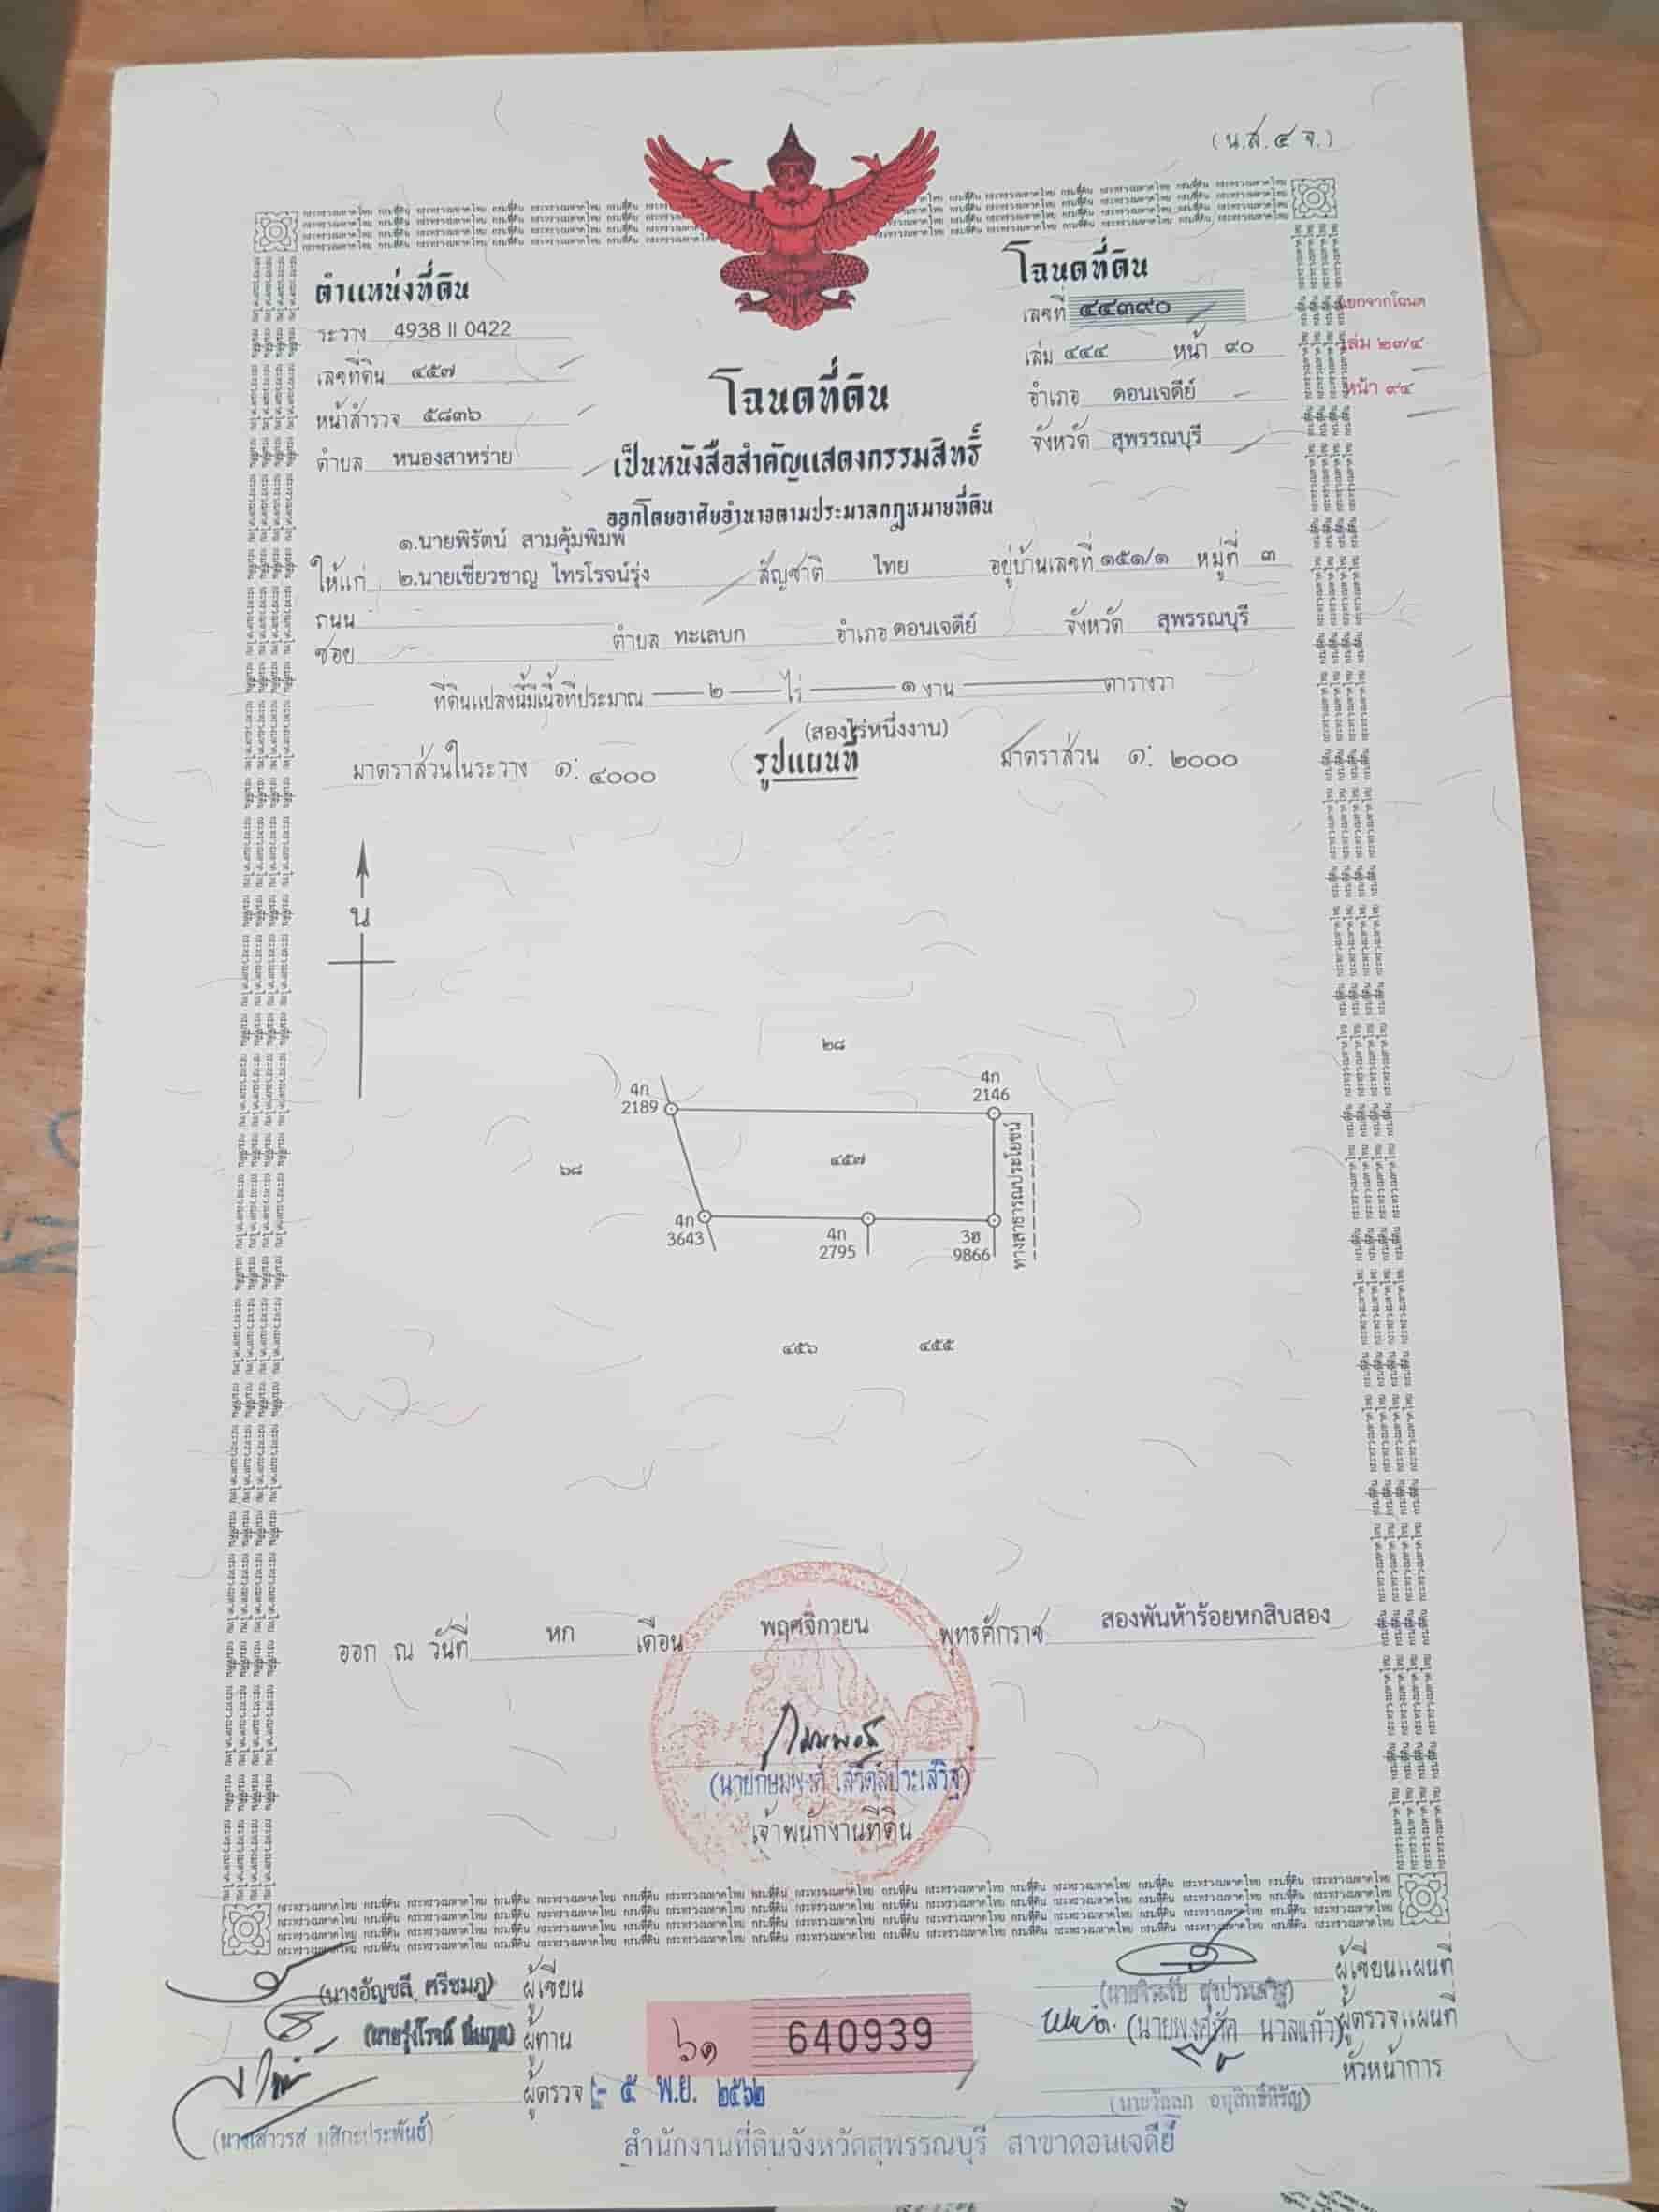 (น.ส.๔ จ.)
ตำแหน่งที่ดิน
ระวาง 4938 II 0422
เลขที่ดิน ๔๕๗
หน้าสำรวจ ๕๘๓๖
ตำบล หนองสาหร่าย
โฉนดที่ดิน
เลขที่ ๔๔๓๙๐
เล่ม ๔๔๔ หน้า ๙๐
อำเภอ ดอนเจดีย์
จังหวัด สุพรรณบุรี
แยกจากโฉนด
เล่ม ๒๗๔
หน้า ๙๔
โฉนดที่ดิน
เป็นหนังสือสำคัญแสดงกรรมสิทธิ์
ออกโดยอาศัยอำนาจตามประมวลกฎหมายที่ดิน
๑.นายพิรัตน์ สามคุ้มพิมพ์
ให้แก่ ๒.นายเชี่ยวชาญ ไทรโรจน์รุ่ง สัญชาติ ไทย อยู่บ้านเลขที่ ๑๕๑/๑ หมู่ที่ ๓
ถนน
ซอย ตำบล ทะเลบก อำเภอ ดอนเจดีย์ จังหวัด สุพรรณบุรี
ที่ดินแปลงนี้มีเนื้อที่ประมาณ ๒ ไร่ ๑ งาน ตารางวา
(สองไร่หนึ่งงาน)
มาตราส่วนในระวาง ๑: ๔๐๐๐ รูปแผนที่ มาตราส่วน ๑: ๒๐๐๐
น
๒๘
4ก 2189
4ก 2146
๔๕๗
๖๘
ทางสาธารณประโยชน์
4ก 3643
4ก 2795
3ฮ 9866
๔๕๖ ๔๕๕
ออก ณ วันที่ หก เดือน พฤศจิกายน พุทธศักราช สองพันห้าร้อยหกสิบสอง
เจ้าพนักงานที่ดิน
(นางอัญชลี ศรีชมภู) ผู้เขียน
ผู้ทาน
ผู้ตรวจ - ๕ พ.ย. ๒๕๖๒
(นางเสาวรส มุสิกะประพันธ์)
๖๑ 640939
ผู้เขียนแผนที่
ผู้ตรวจแผนที่
หัวหน้าการ
สำนักงานที่ดินจังหวัดสุพรรณบุรี สาขาดอนเจดีย์